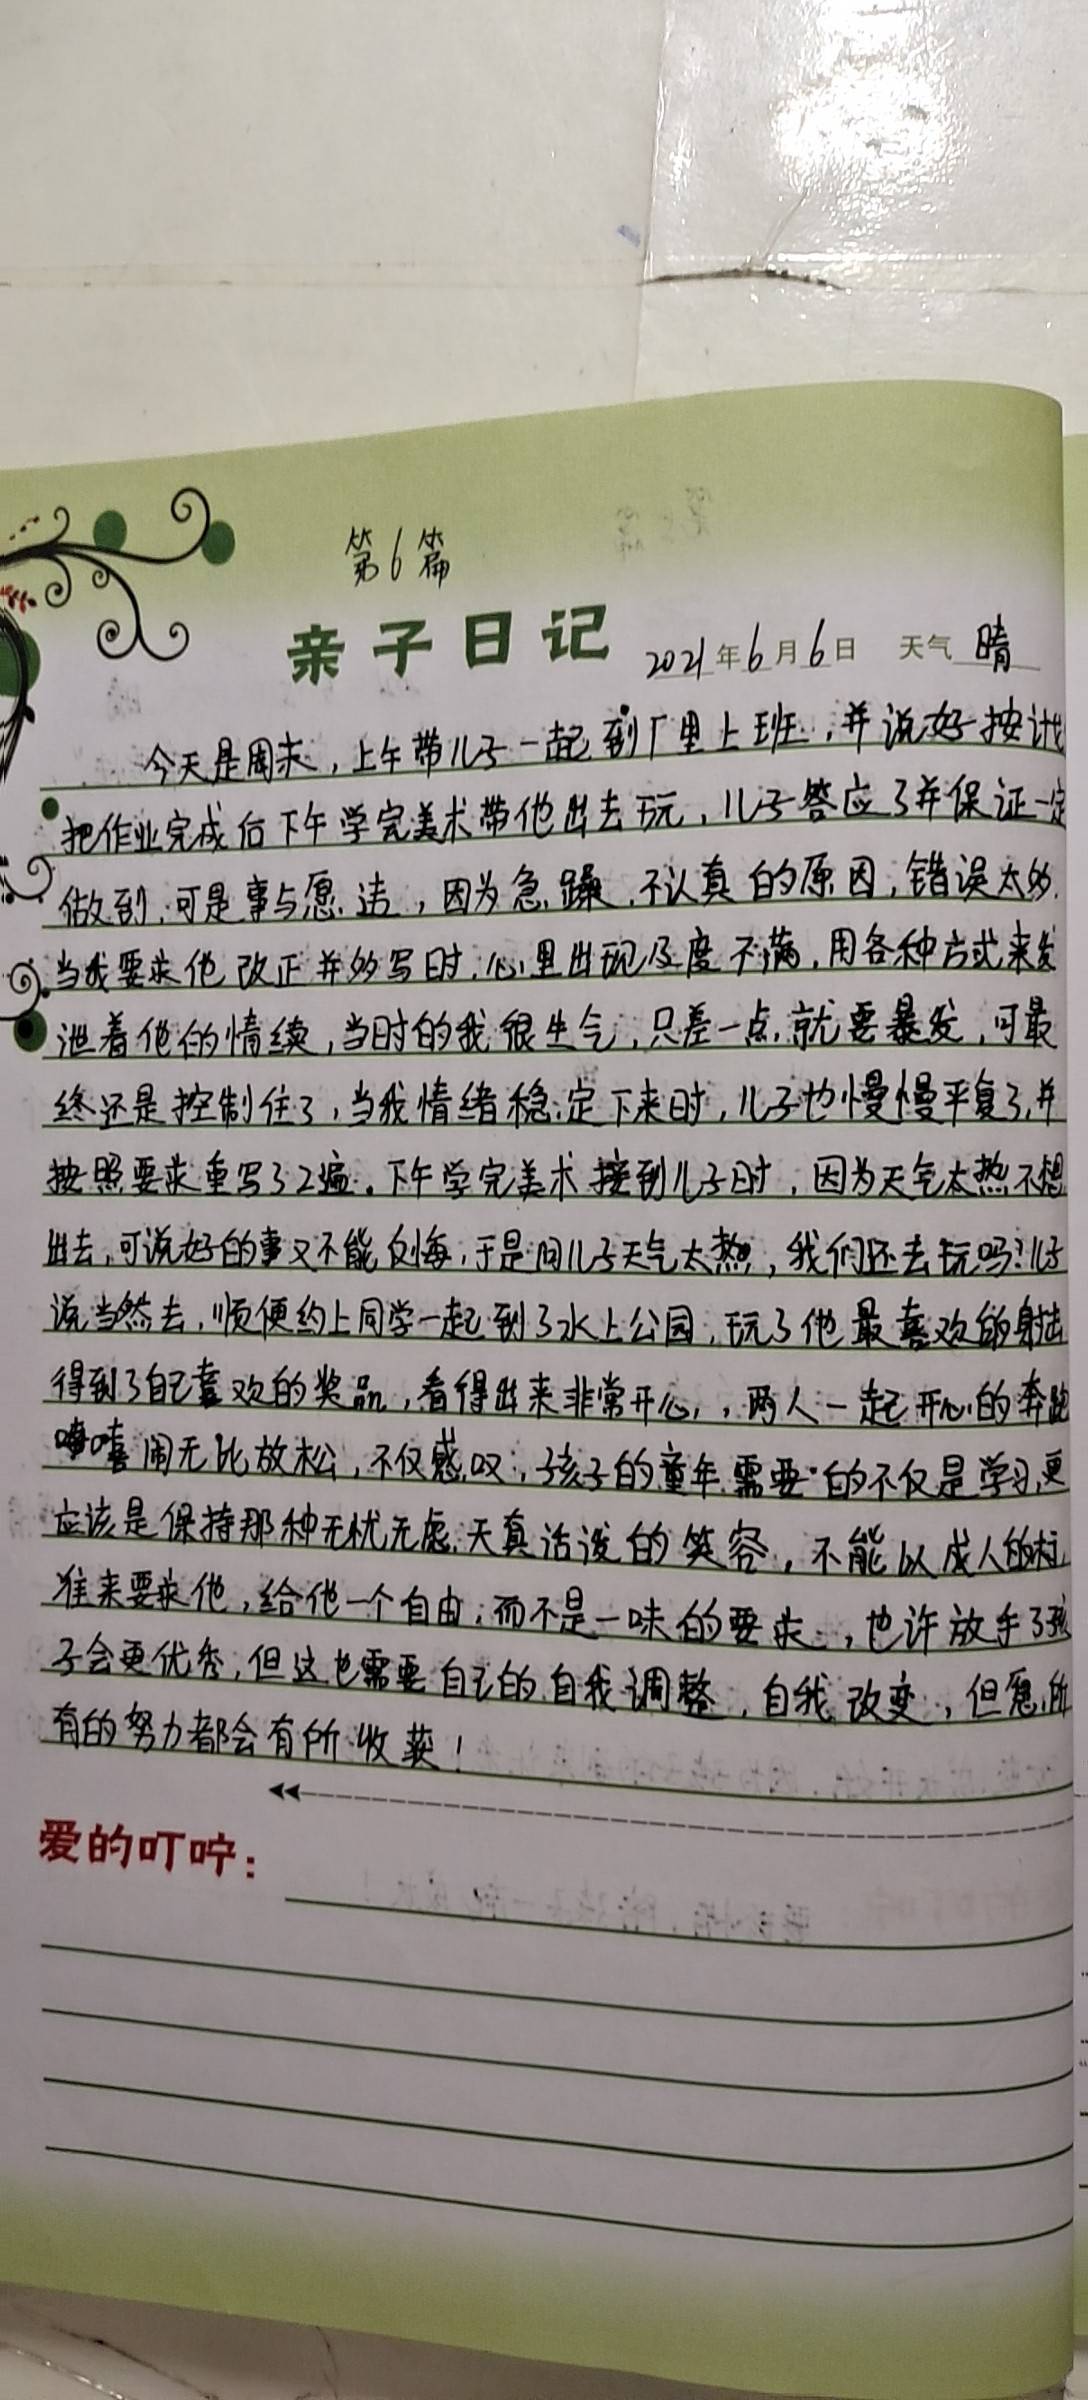 第6篇
亲子日记 2021年6月6日 天气 晴
今天是周末，上午带儿子一起到厂里上班，并说好按计
把作业完成后下午学完美术带他出去玩，儿子答应了并保证一定
做到，可是事与愿违，因为急躁，不认真的原因，错误太多，
当我要求他改正并多写时，心里出现及度不满，用各种方式来发
泄着他的情续，当时的我很生气，只差一点就要暴发，可最
终还是控制住了，当我情绪稳定下来时，儿子也慢慢平复了，并
按照要求重写了2遍。下午学完美术接到儿子时，因为天气太热不想
出去，可说好的事又不能反悔，于是问儿子天气太热，我们还去玩吗？儿子
说当然去，顺便约上同学一起到了水上公园，玩了他最喜欢的射击
得到了自己喜欢的奖品，看得出来非常开心，，两人一起开心的奔跑
嘻闹无比放松，不仅感叹，孩子的童年需要的不仅是学习，更
应该是保持那种无忧无虑，天真活泼的笑容，不能以成人的标
准来要求他，给他一个自由，而不是一味的要求，也许放手了孩
子会更优秀，但这也需要自己的自我调整，自我改变，但愿所
有的努力都会有所收获！
爱的叮咛：